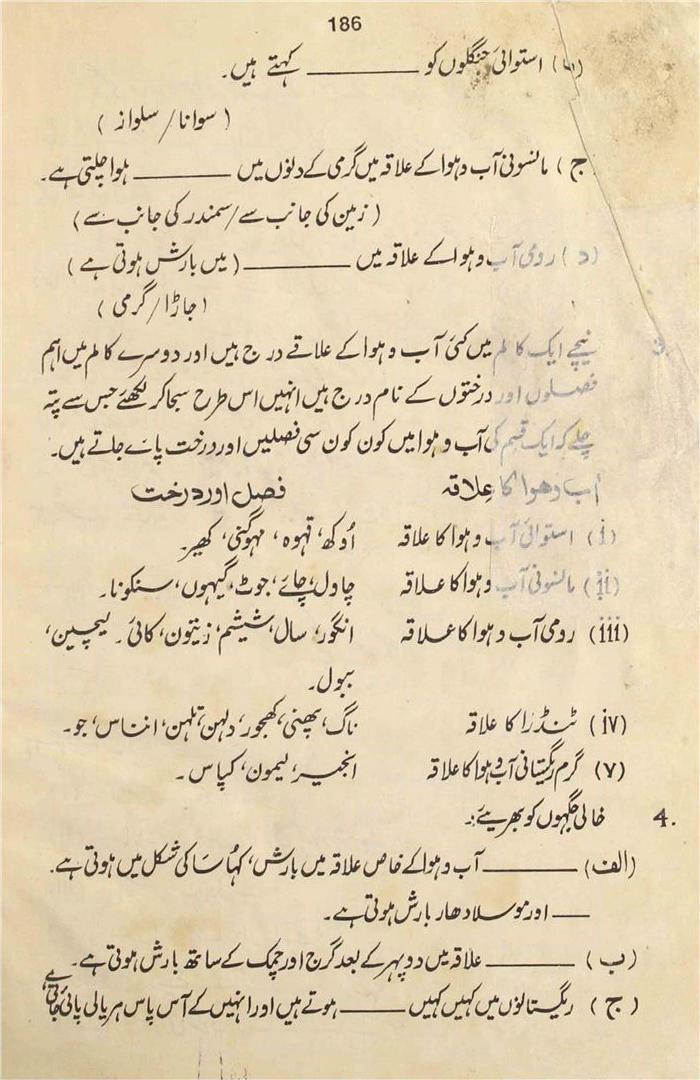 186
(ب) استوائی جنگلوں کو ________ کہتے ہیں۔
(سوانا/ سلواز)
(ج) مانسونی آب و ہوا کے علاقہ میں گرمی کے دنوں میں ________ ہوا چلتی ہے۔
(زمین کی جانب سے/سمندر کی جانب سے)
(د) رومی آب و ہوا کے علاقہ میں ________ (میں بارش ہوتی ہے)
(جاڑا/گرمی)
3. نیچے ایک کالم میں کئی آب و ہوا کے علاقے درج ہیں اور دوسرے کالم میں اہم
فصلوں اور درختوں کے نام درج ہیں انہیں اس طرح سجا کر لکھئے جس سے پتہ
چلے کہ ایک قسم کی آب و ہوا میں کون کون سی فصلیں اور درخت پائے جاتے ہیں۔
آب و ہوا کا علاقہ فصل اور درخت
(i) استوائی آب و ہوا کا علاقہ اُوکھ، قہوہ، مہوگنی، کھیر۔
(ii) مانسونی آب و ہوا کا علاقہ چاول، چائے، جوٹ، گیہوں، سنکونا۔
(iii) رومی آب و ہوا کا علاقہ انگور، سال، شیشم، زیتون، کائی۔ لیچین،
ببول۔
(iv) ٹنڈرا کا علاقہ ناگ پھنی، کھجور، دلہن، تلہن، انناس، جو۔
(v) گرم ریگستانی آب و ہوا کا علاقہ انجیر، لیمون، کپاس۔
4. خالی جگہوں کو بھریئے:۔
(الف) ________ آب و ہوا کے خاص علاقہ میں بارش، کہاسا کی شکل میں ہوتی ہے۔
___ اور موسلادھار بارش ہوتی ہے۔
(ب) ________ علاقہ میں دوپہر کے بعد گرج اور چمک کے ساتھ بارش ہوتی ہے۔
(ج) ریگستانوں میں کہیں کہیں ______ ہوتے ہیں اور انہیں کے آس پاس ہریالی پائی جاتی ہے،